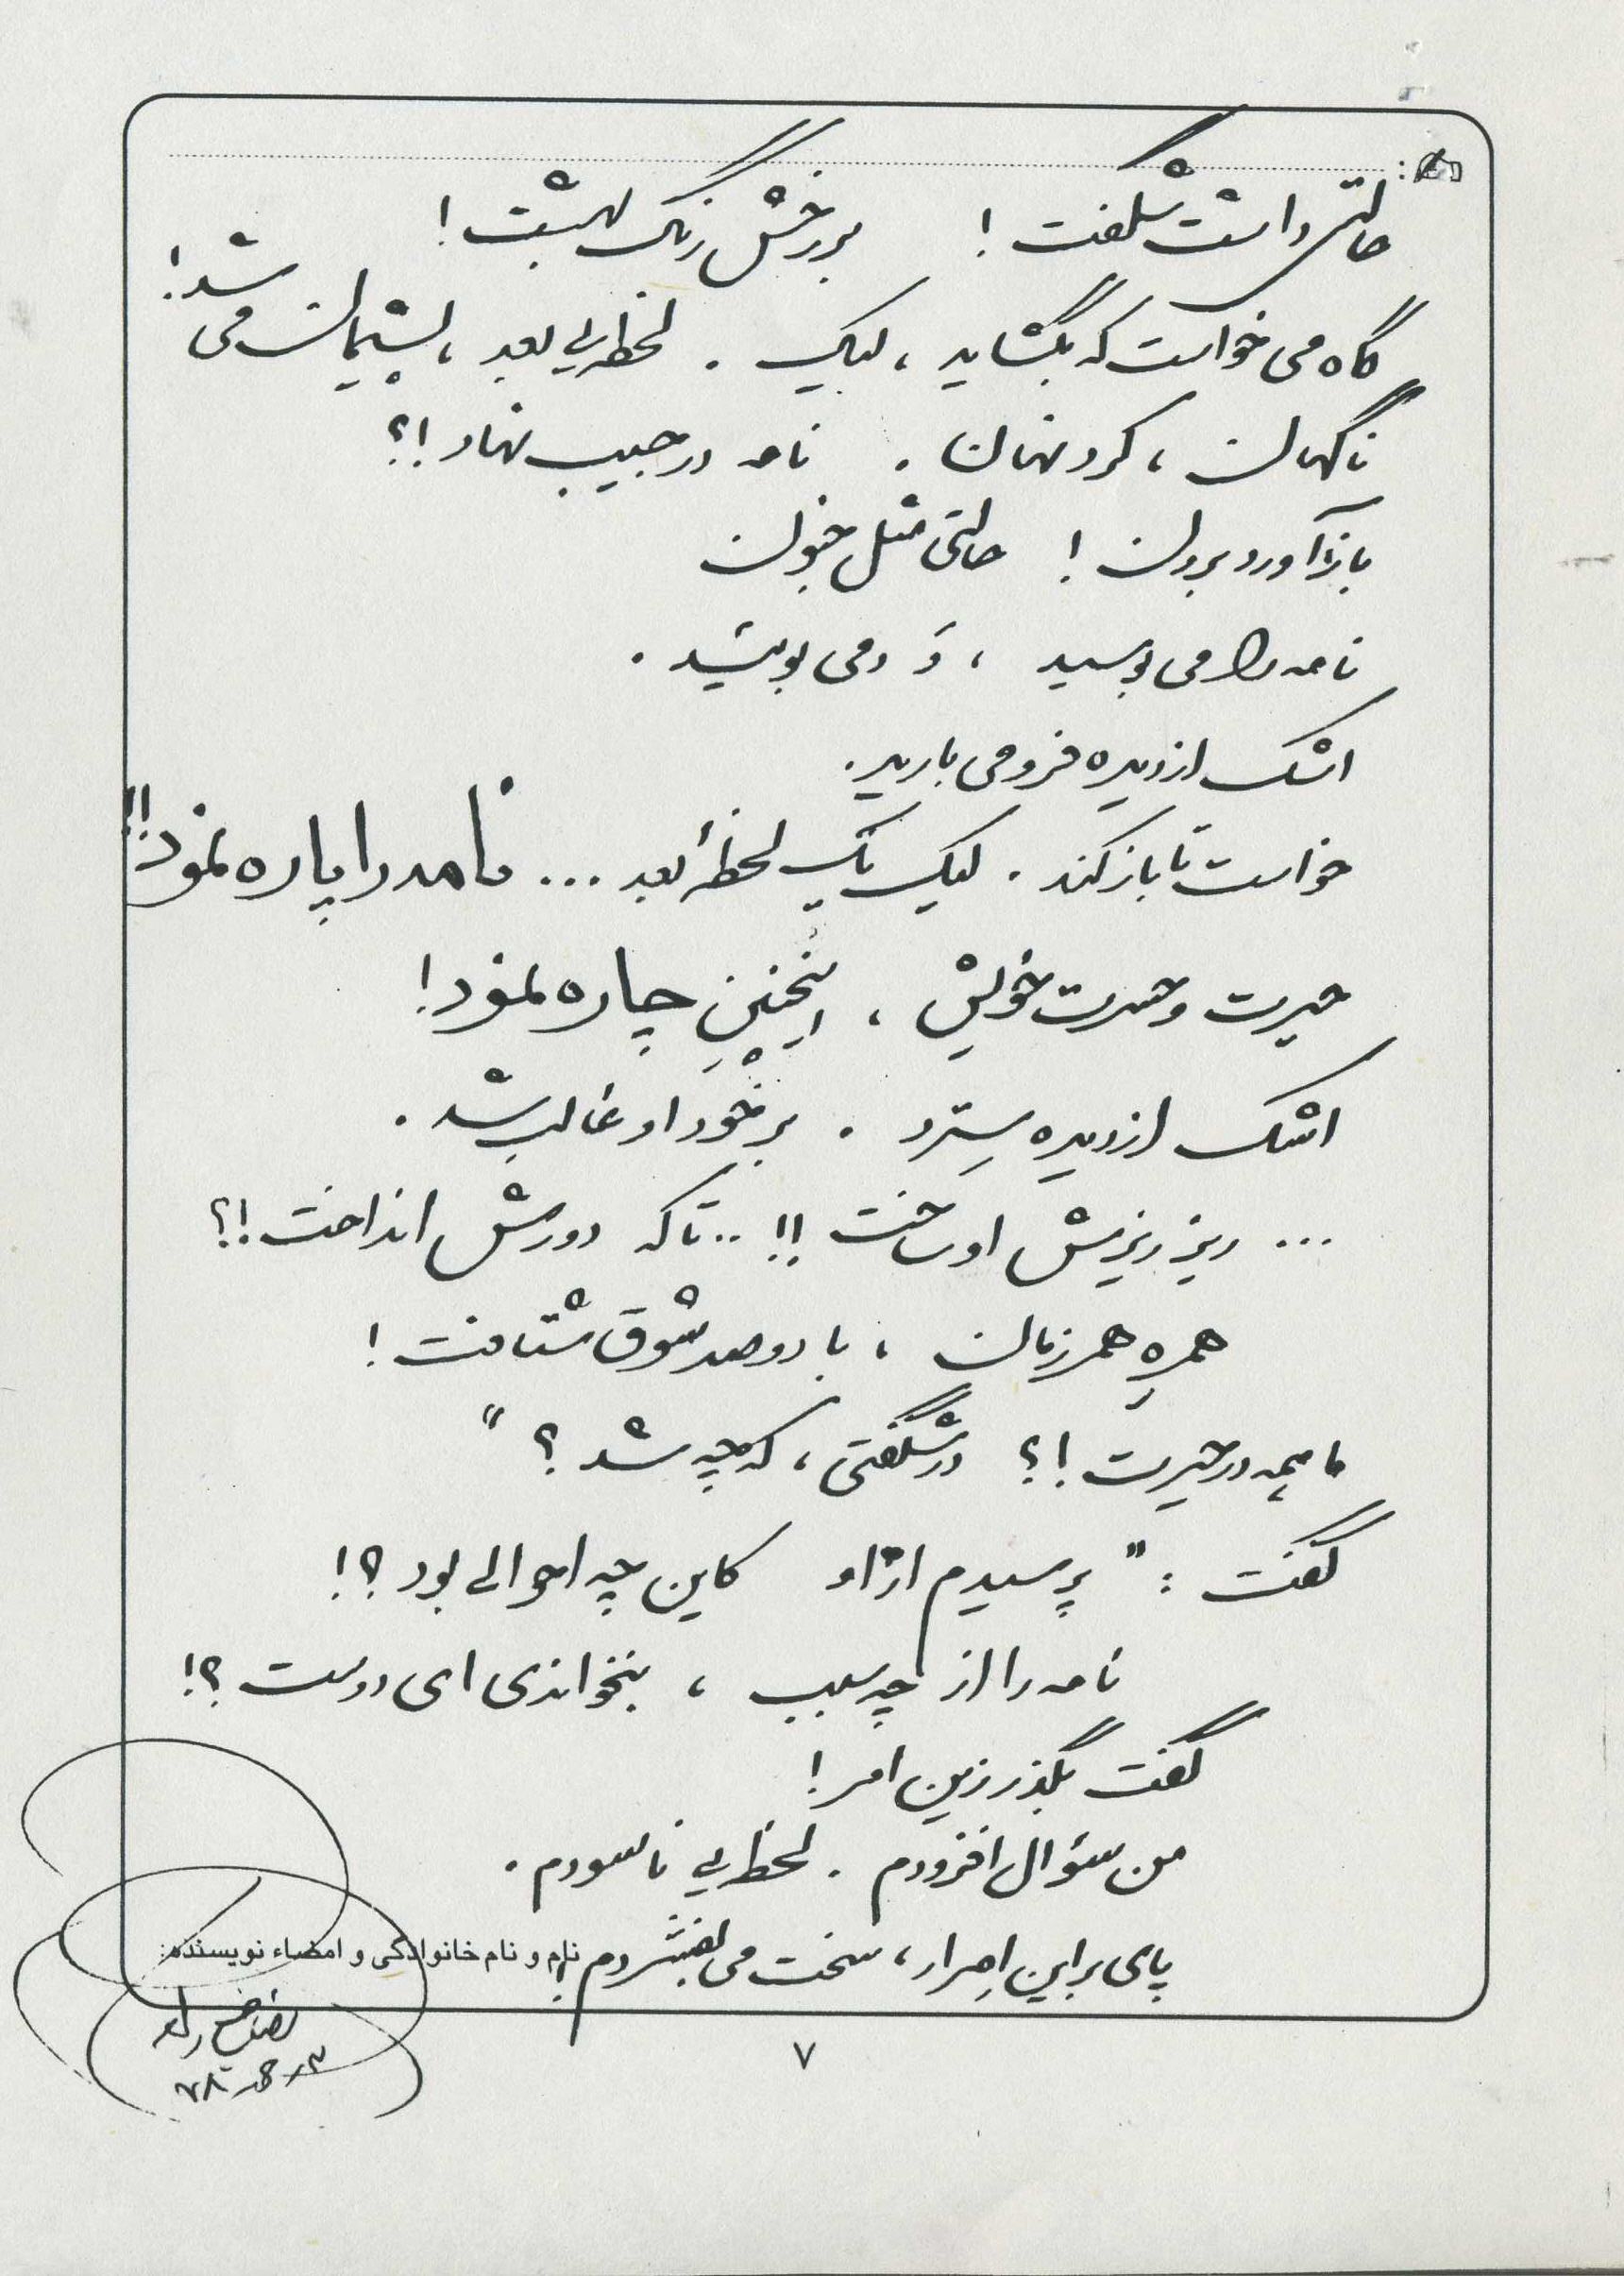 حالتی داشت شگفت! بر رخش رنگ بهشت!
گاه می خواست که بگشاید، لیک. لحظه‌یی بعد، پشیمان می شد!
ناگهان، کرد نهان. نامه در جیب نهاد!؟
باز آورد برون! حالتی مثل جنون
نامه را می بوسید، وَ می بوئید.
اشک از دیده فرو می بارید.
خواست تا باز کند. لیک یک لحظهٔ بعد ... نامه را پاره نمود!!
حیرت و حسرت خویش، اینچنین چاره نمود!
اشک از دیده سِترد. بر خود او غالب شد.
... ریز ریزش او ساخت!! .. تا که دورش انداخت!؟
همرهِ همرزمان، با دو صد شوق شتافت!
ما همه در حیرت!؟ در شگفتی، که چه شد؟"
گفت: "پرسیدم از او کاین چه احوالی بود؟!
نامه را از چه سبب، بنخواندی ای دوست؟!
گفت بگذر زین امر!
من سئوال افزودم. لحظه‌یی ناسودم.
پای بر این اِصرار، سخت می بفشردم!
نام و نام خانوادگی و امضاء نویسنده:
۷